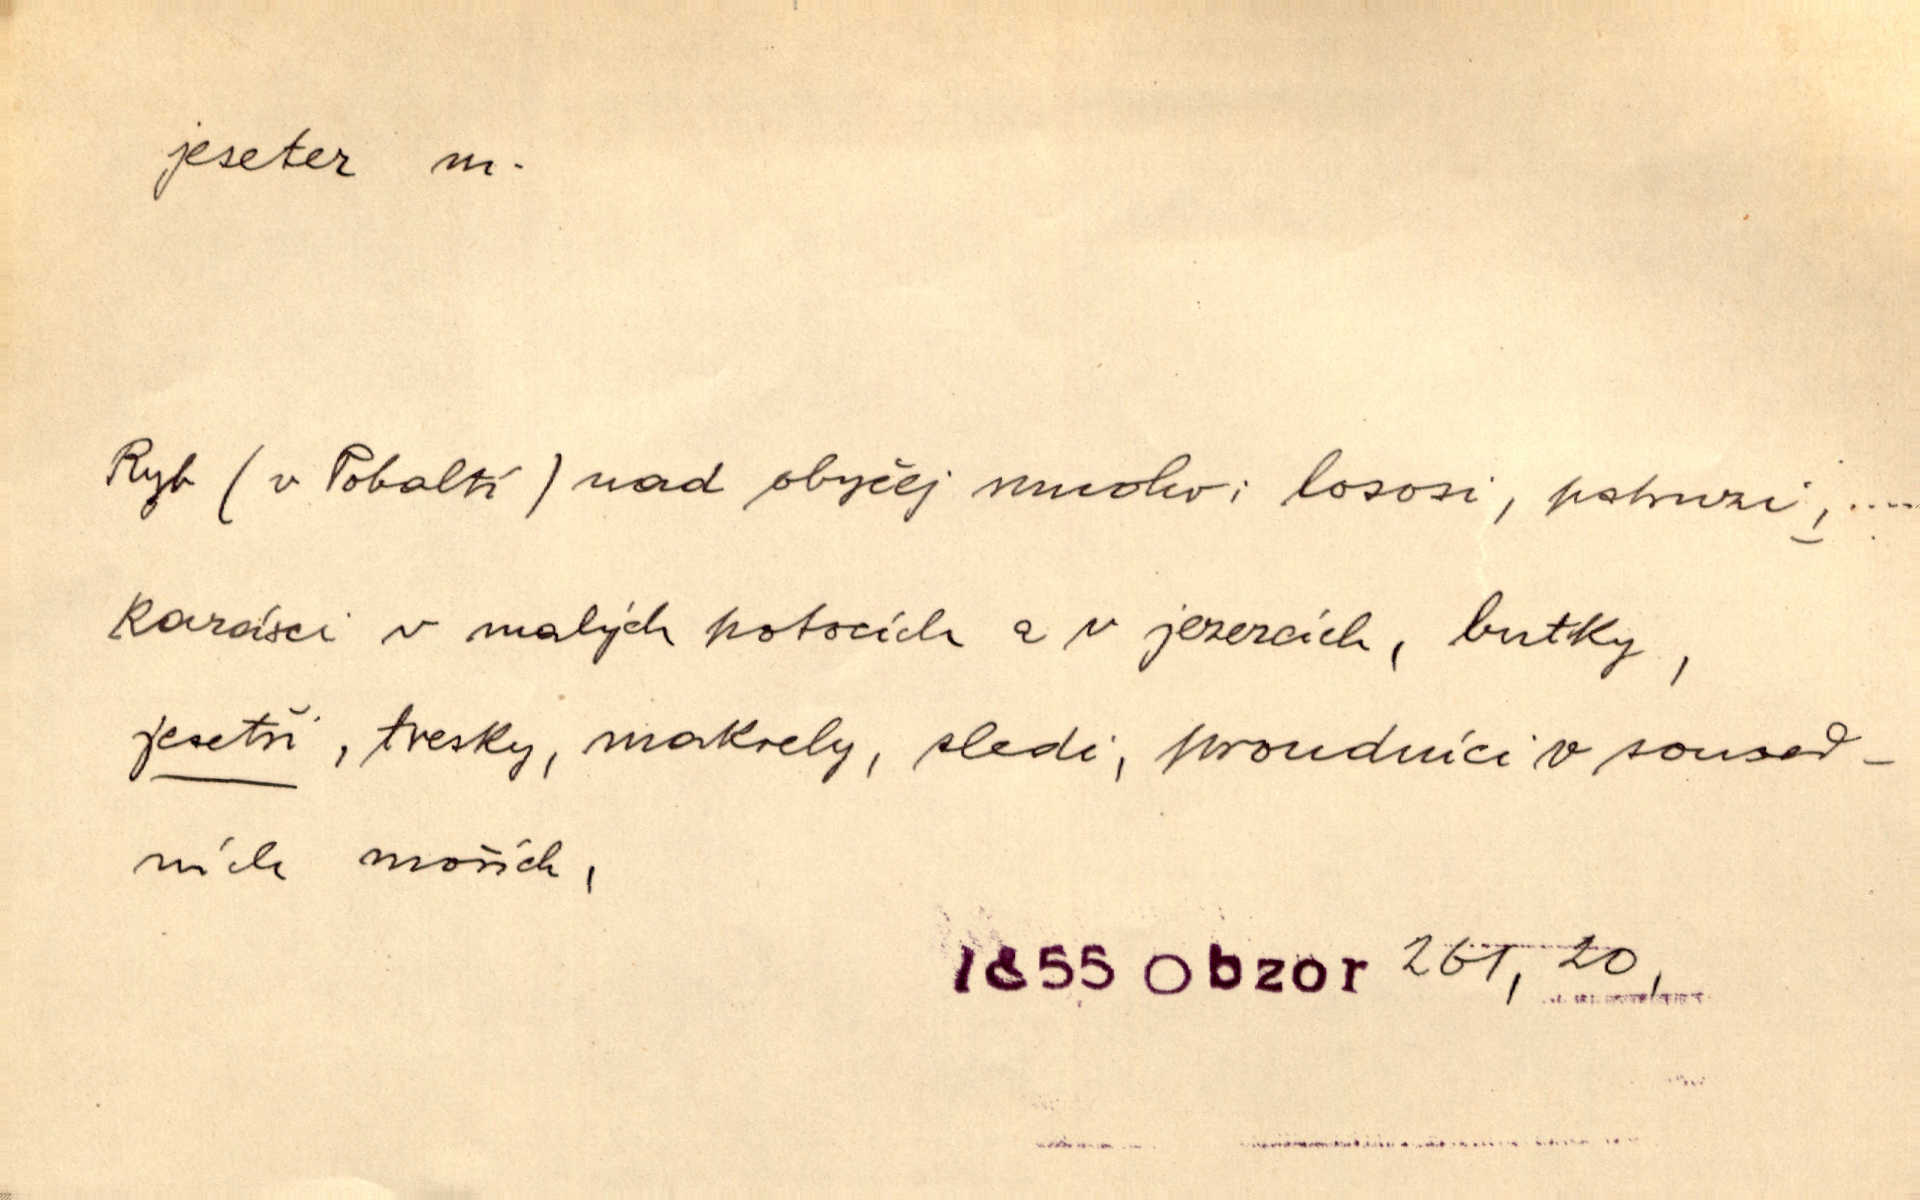 jeseter m.
Ryb (v Pobaltí) nad obyčej mnoho: lososi, pstruzi, .....
karásci v malých potocích a v jezercích, butky,
jesetři, tresky, makrely, sledi, proudníci v soused-
ních mořích,
1855 Obzor 261, 20,